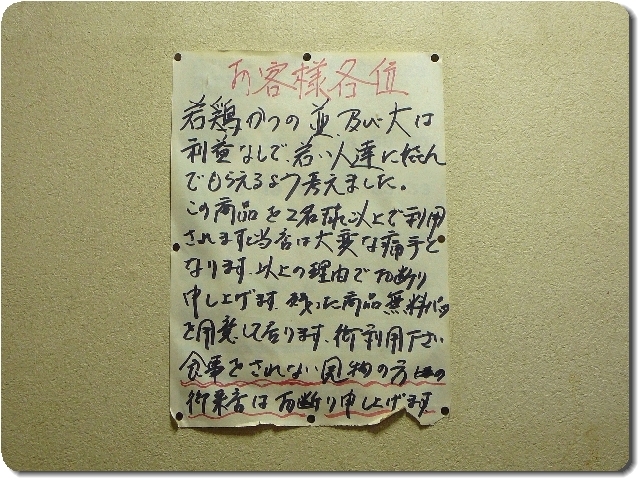 お客様各位
若鶏かつの並及び大は
利益なしで、若い人達に
でもらえるよう考えました。
この商品を2名様以上で利用
されますと当店は大変な痛手と
なります。以上の理由でお断り
申し上げます。残った商品無料パック
を用意して居ります。御利用下さい
食事をされない見物の方の
御来店はお断り申し上げます